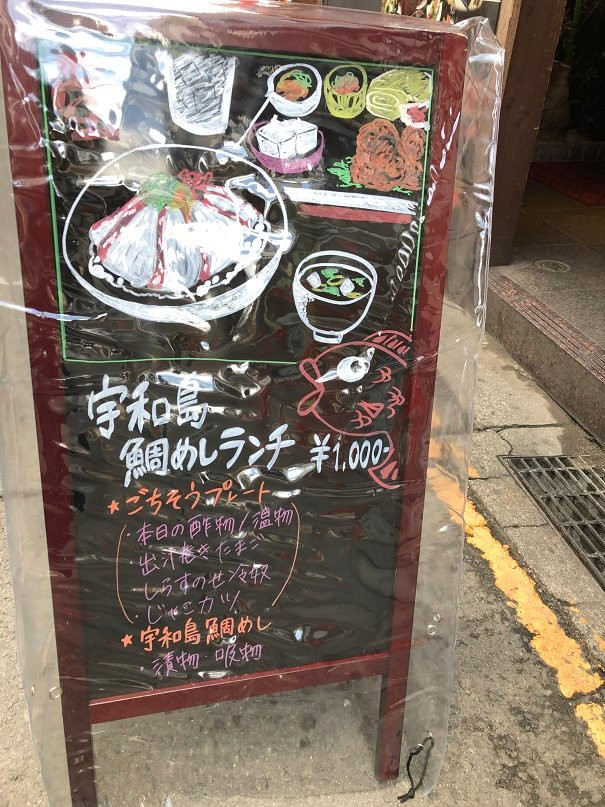 宇和島
鯛めしランチ ¥1,000-
★ごちそうプレート
・本日の酢物/温物
出汁巻きたまご
しらすのせ冷奴
・じゃこカツ
★宇和島鯛めし
・漬物・吸物